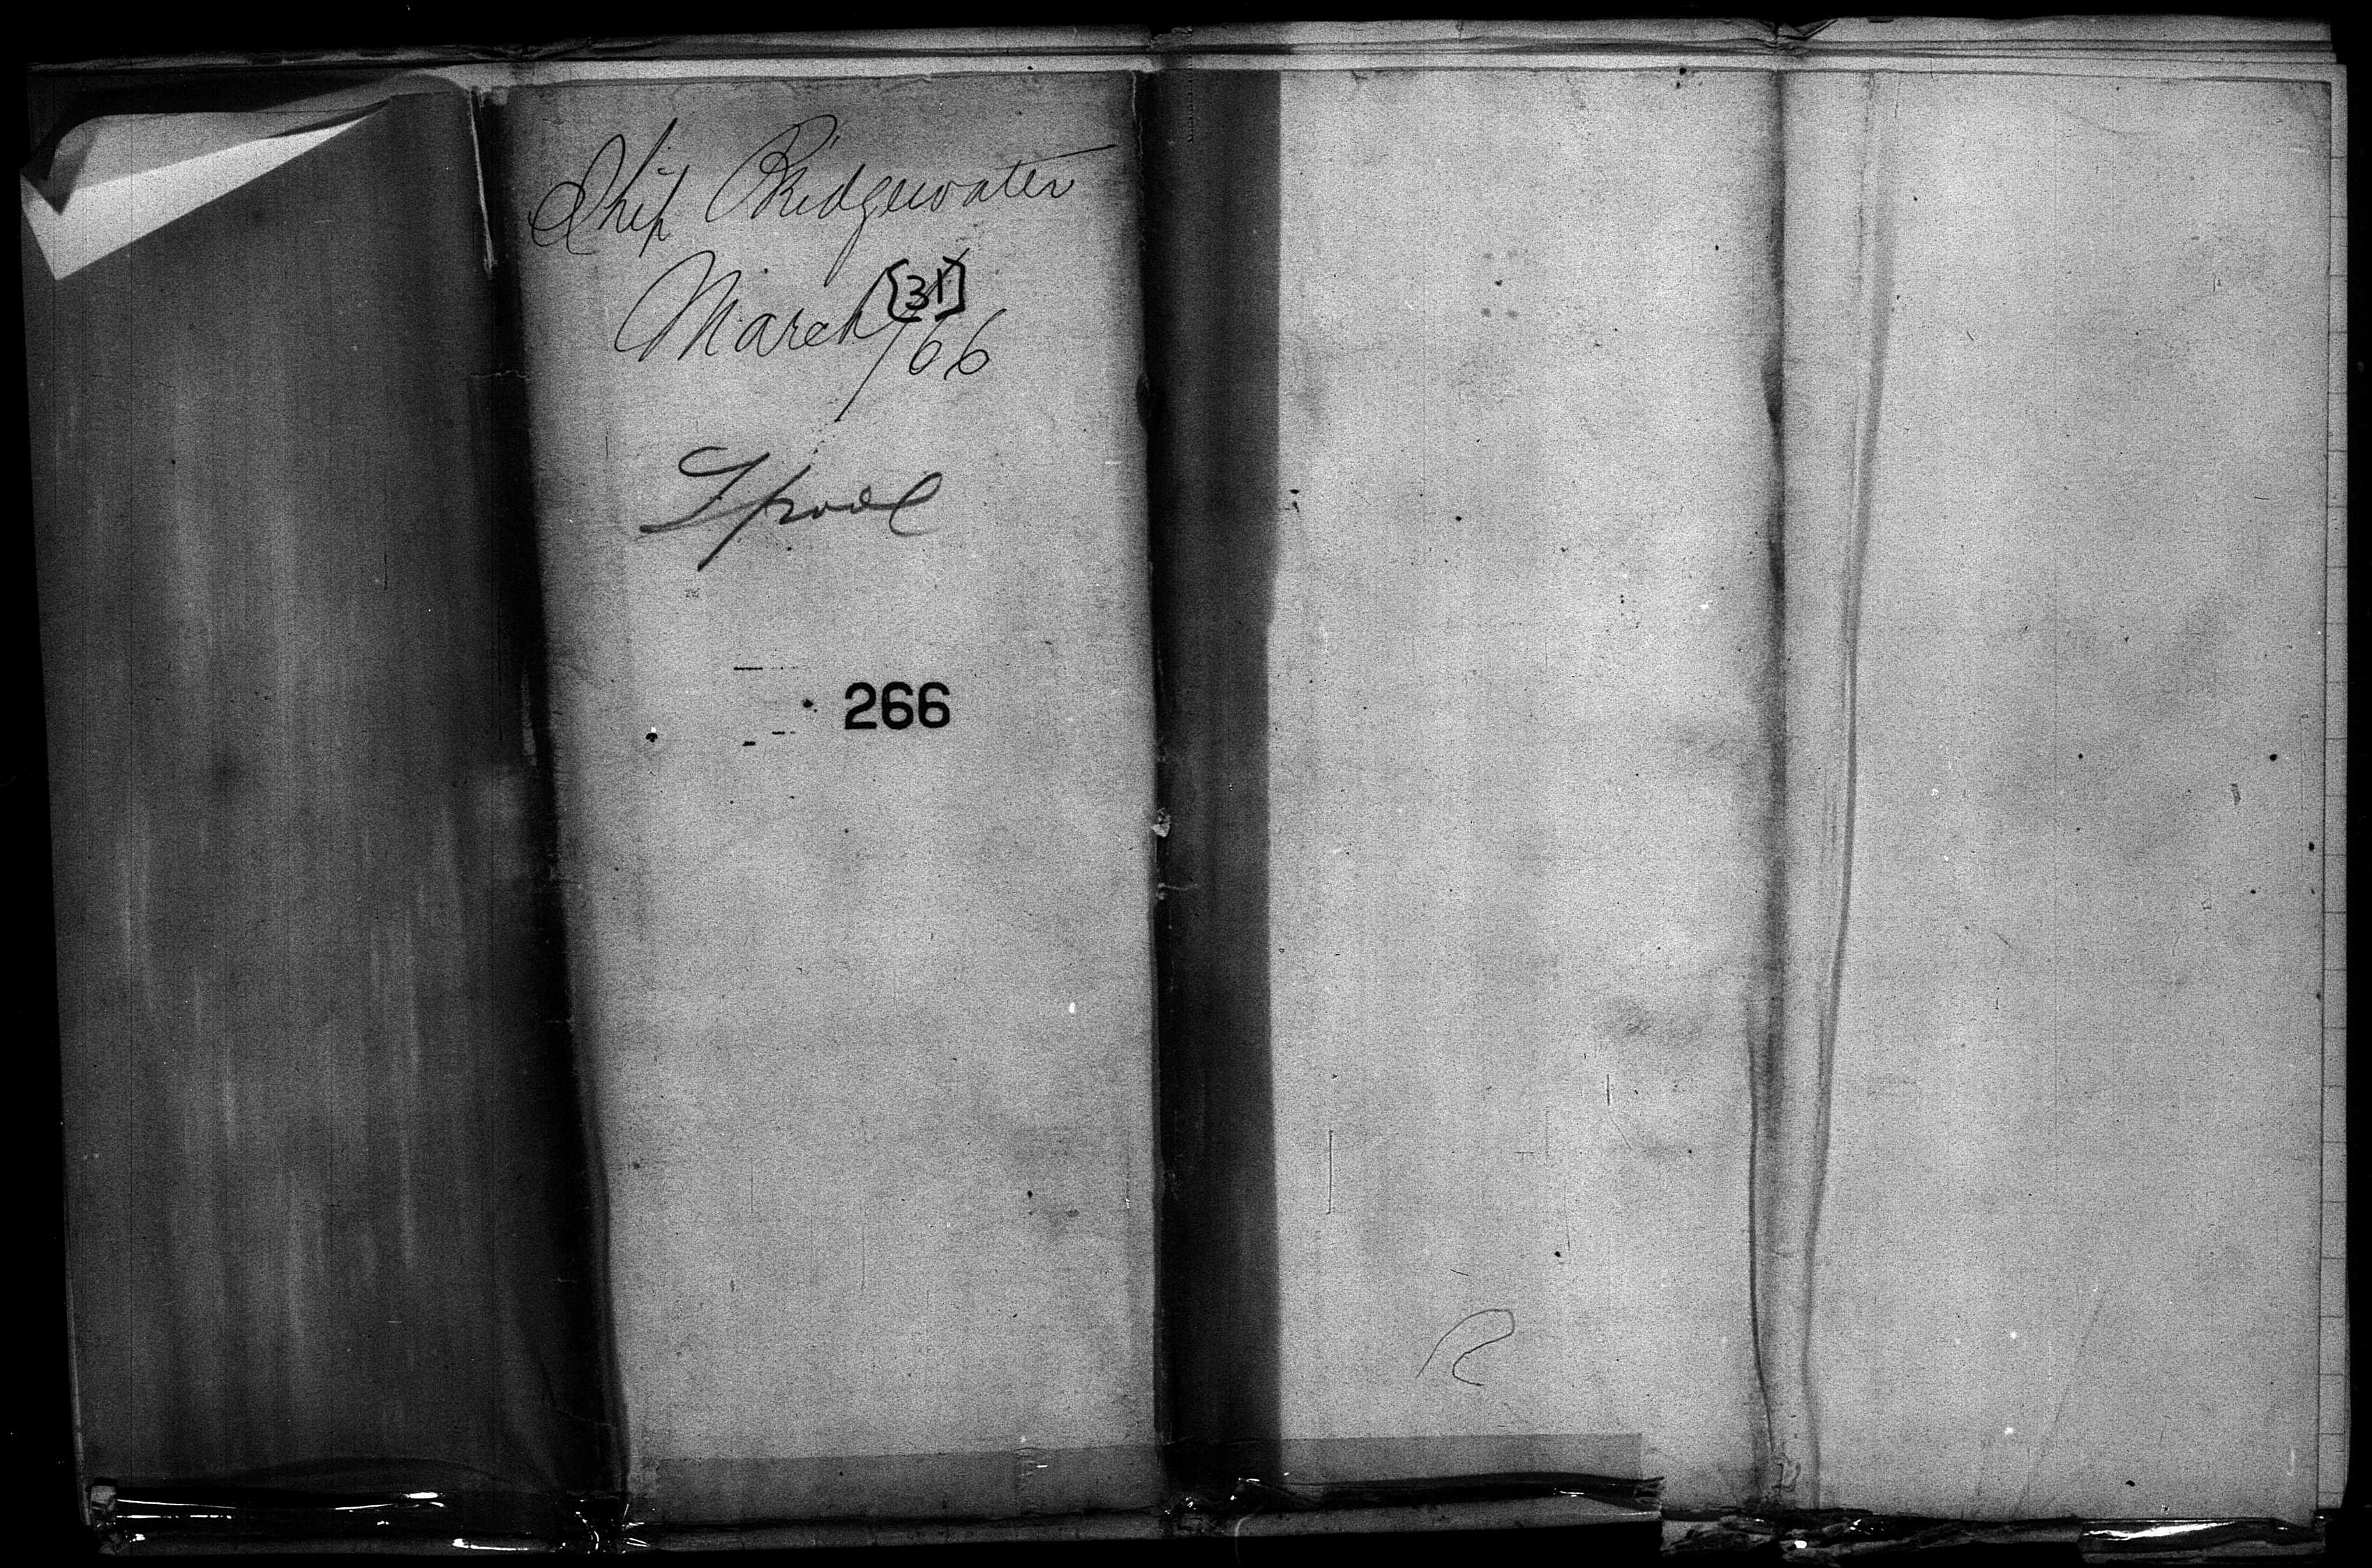 Ship Bridgewater
March [31] /66
Lpool
266
R